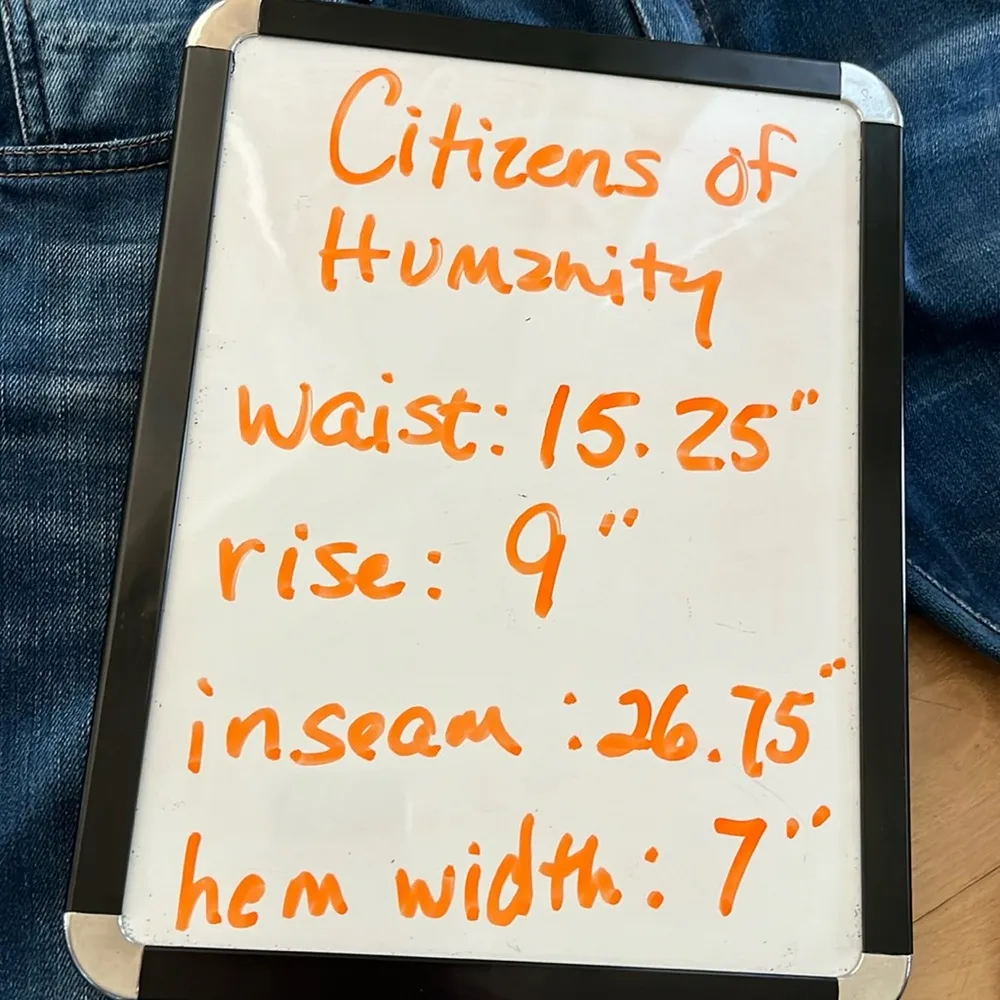 Citizens of
Humanity
waist: 15.25"
rise: 9"
inseam: 26.75"
hem width: 7"